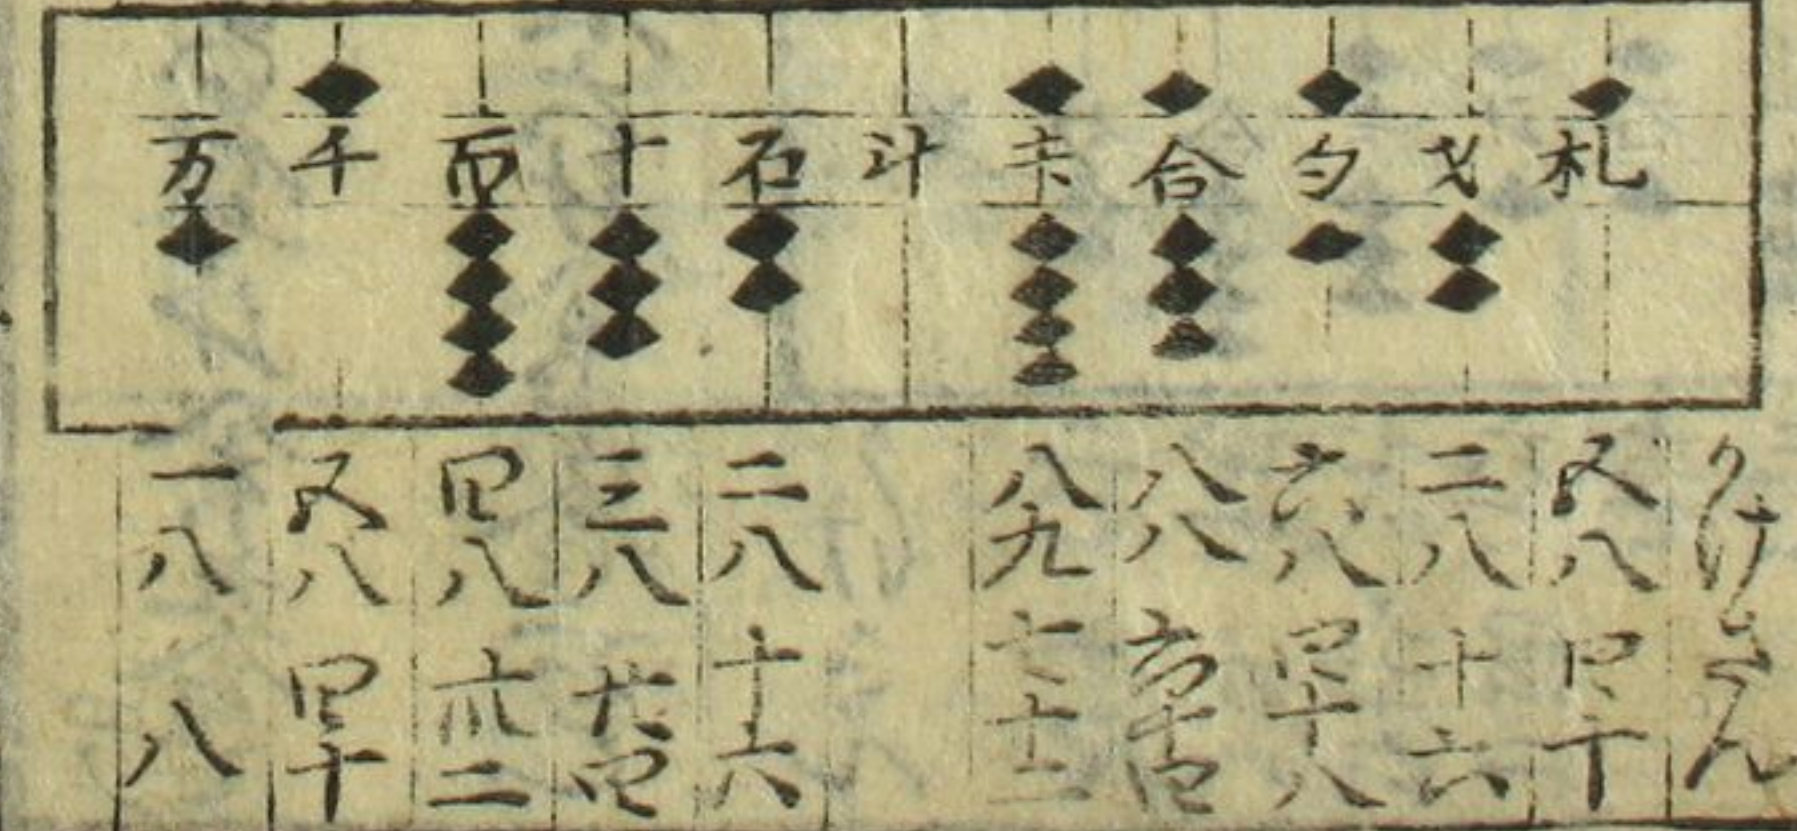 札才勺合升斗石十百千万
かけさん
五八 四十
二八 十六
六八 四十八
八八 六十四
八九 七十二
二八 十六
三八 廿四
四八 卅二
五八 四十
一八 八